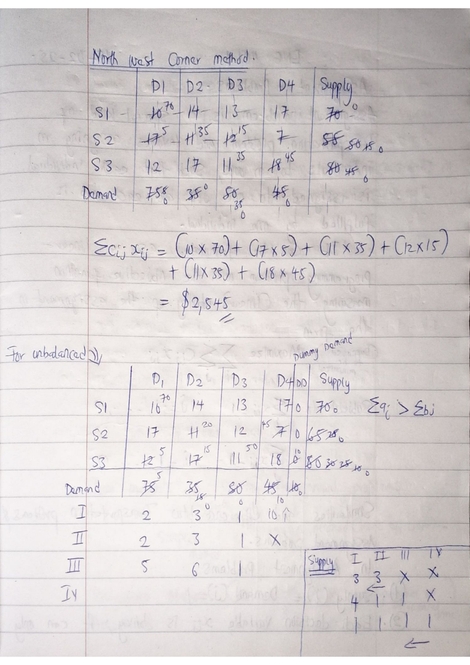 North West Corner method.
D1 D2 D3 D4 Supply
S1 10 70 14 13 17 70 0
S2 17 5 11 35 12 15 7 55 50 15 0
S3 12 17 11 35 18 45 80 45 0
Demand 75 5 0 35 0 50 35 0 45 0
Σcij xij = (10 x 70) + (17 x 5) + (11 x 35) + (12 x 15)
+ (11 x 35) + (18 x 45)
= $2,545
For unbalanced
Dummy Demand
D1 D2 D3 D4 DD Supply
S1 10 70 14 13 17 0 70 0 Σai > Σbj
S2 17 11 20 12 45 7 0 65 20 0
S3 12 5 17 15 11 50 18 0 10 80 30 25 10 0
Demand 75 5 35 15 0 50 0 45 10
I 2 3 1 10 ↑
II 2 3 1 X
III 5 6 1
IV
Supply I II III IV
3 3 X X
4 1 1 X
1 1 1 1